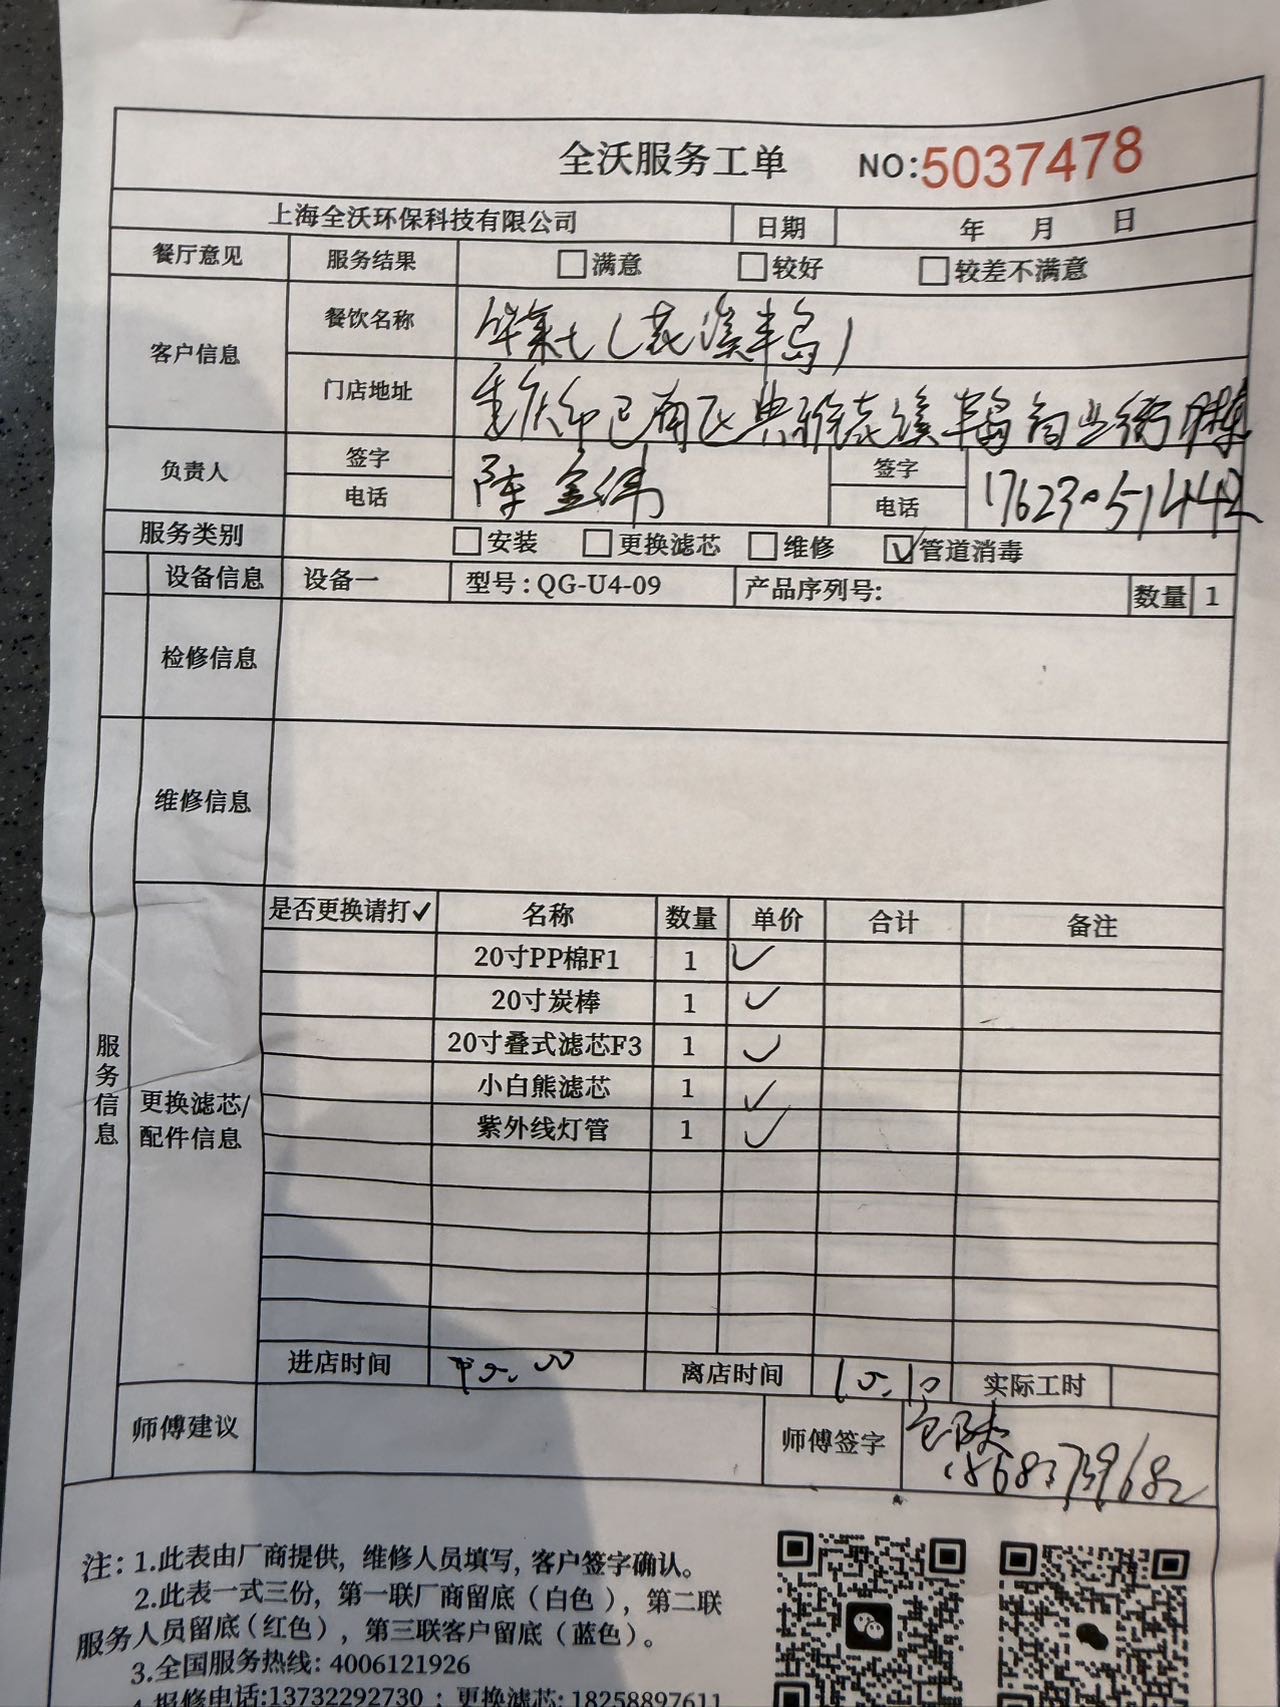 全沃服务工单 NO:5037478
上海全沃环保科技有限公司 日期 年 月 日
餐厅意见 服务结果 满意 较好 较差不满意
客户信息 餐饮名称 华莱士(花溪半岛)
门店地址 重庆市巴南区典雅花溪半岛商业街
负责人 签字 陈金伟 签字
电话 电话 17623051442
服务类别 安装 更换滤芯 维修 ✓管道消毒
设备信息 设备一 型号:QG-U4-09 产品序列号: 数量 1
检修信息
维修信息
服务信息
更换滤芯/
配件信息
是否更换请打✓ 名称 数量 单价 合计 备注
20寸PP棉F1 1 ✓
20寸炭棒 1 ✓
20寸叠式滤芯F3 1 ✓
小白熊滤芯 1 ✓
紫外线灯管 1 ✓
进店时间 离店时间 15.10 实际工时
师傅建议 师傅签字
注: 1.此表由厂商提供, 维修人员填写, 客户签字确认。
2.此表一式三份, 第一联厂商留底(白色), 第二联
服务人员留底(红色), 第三联客户留底(蓝色)。
3.全国服务热线: 4006121926
4.报修电话:13732292730 ; 更换滤芯: 18258897611